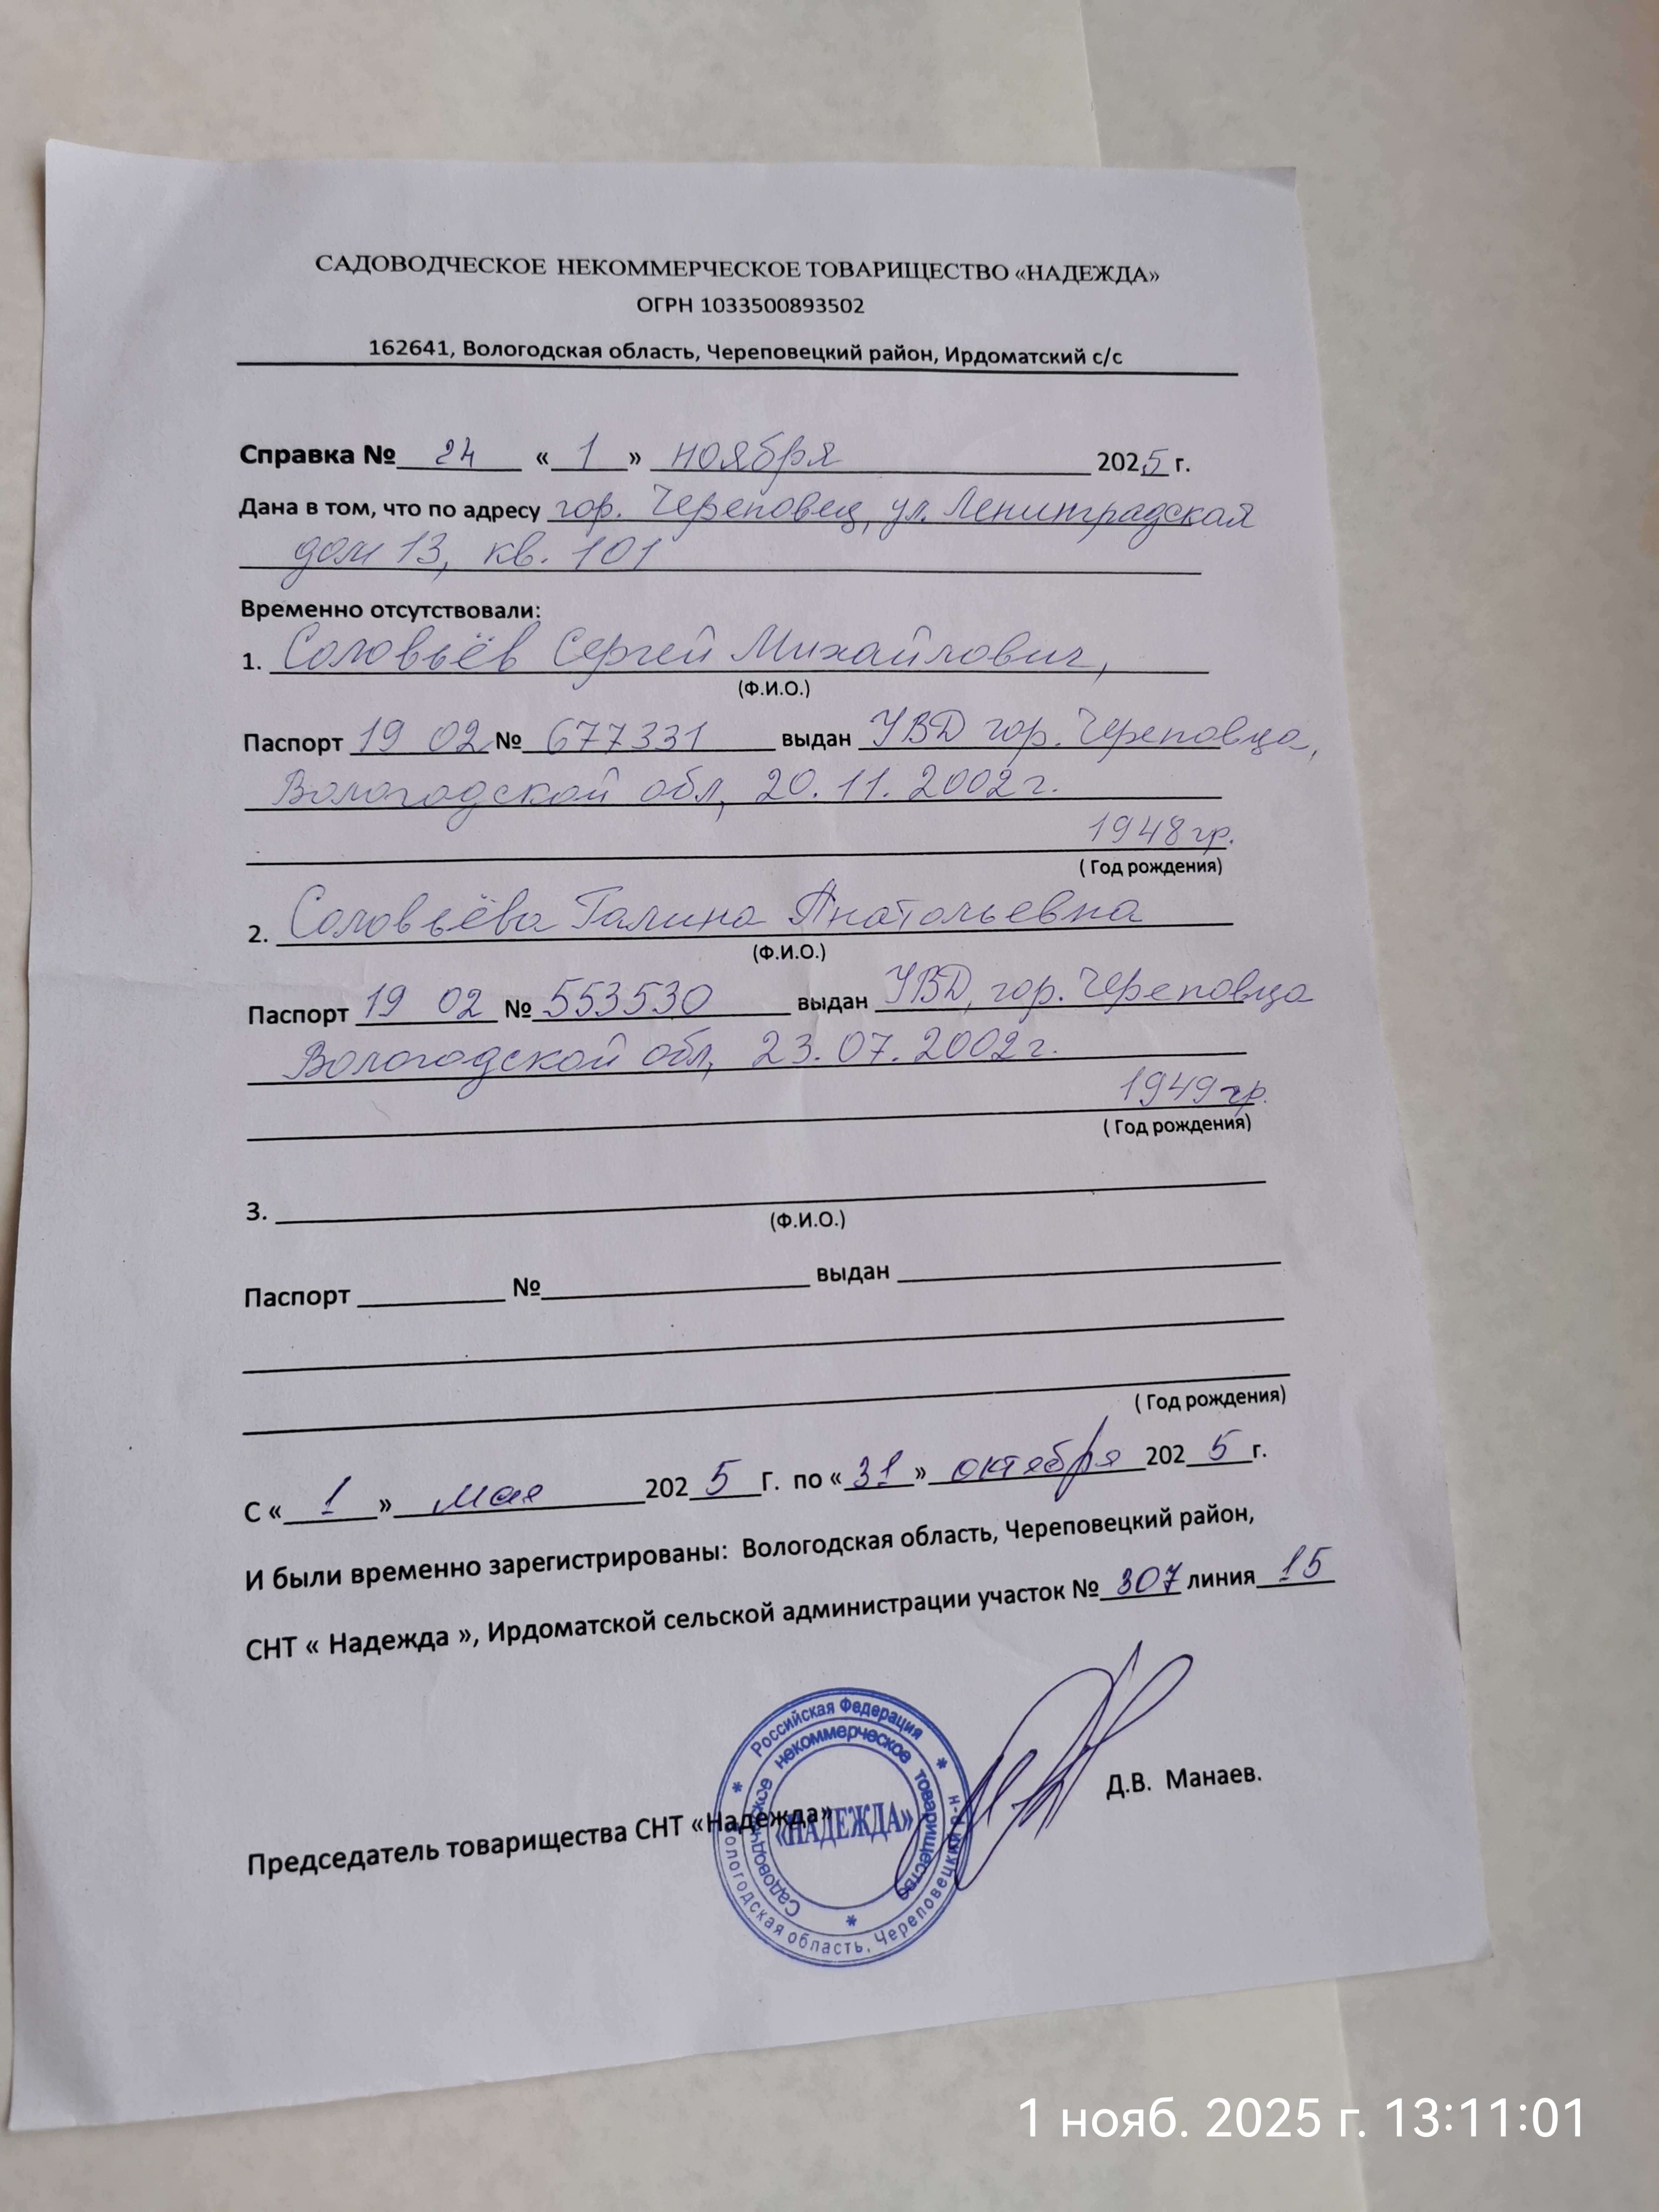 САДОВОДЧЕСКОЕ НЕКОММЕРЧЕСКОЕ ТОВАРИЩЕСТВО «НАДЕЖДА»
ОГРН 1033500893502
162641, Вологодская область, Череповецкий район, Ирдоматский с/с
Справка № 24 « 1 » ноября 2025 г.
Дана в том, что по адресу гор. Череповец, ул. Ленинградская
дом 13, кв. 101
Временно отсутствовали:
1. Соловьёв Сергей Михайлович,
(Ф.И.О.)
Паспорт 19 02 № 677331 выдан УВД гор. Череповца,
Вологодской обл, 20.11.2002г.
1948 гр.
( Год рождения)
2. Соловьёва Галина Анатольевна
(Ф.И.О.)
Паспорт 19 02 № 553530 выдан УВД, гор. Череповца
Вологодской обл, 23.07.2002г.
1949 гр.
( Год рождения)
3.
(Ф.И.О.)
Паспорт № выдан
( Год рождения)
С « 1 » мая 2025 Г. по « 31 » октября 2025 г.
И были временно зарегистрированы: Вологодская область, Череповецкий район,
СНТ « Надежда », Ирдоматской сельской администрации участок № 307 линия 15
Председатель товарищества СНТ «Надежда» Д.В. Манаев.
Российская Федерация * Вологодская область, Череповецкий р-н *
Садоводческое некоммерческое товарищество *
«НАДЕЖДА»
1 нояб. 2025 г. 13:11:01